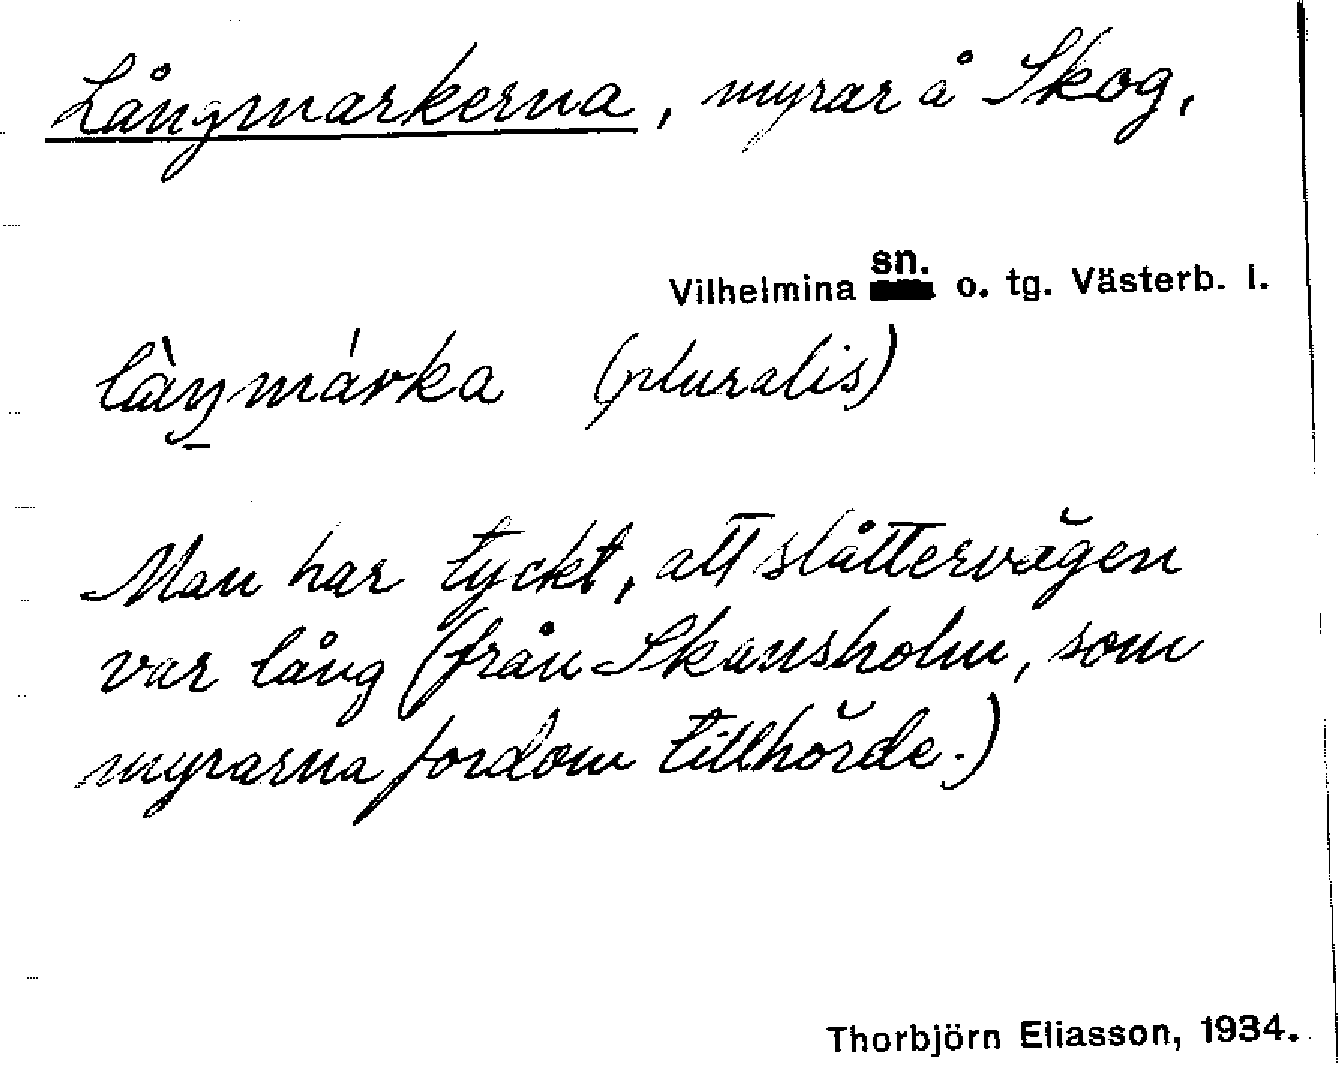 Långmarkerna, myrar å Skog,
Vilhelmina sn. o. tg. Västerb. l.
làŋmárka (pluralis)
Man har tyckt, att slåttervägen
var lång (från Skansholm, som
myrarna fordom tillhörde.)
Thorbjörn Eliasson, 1934.